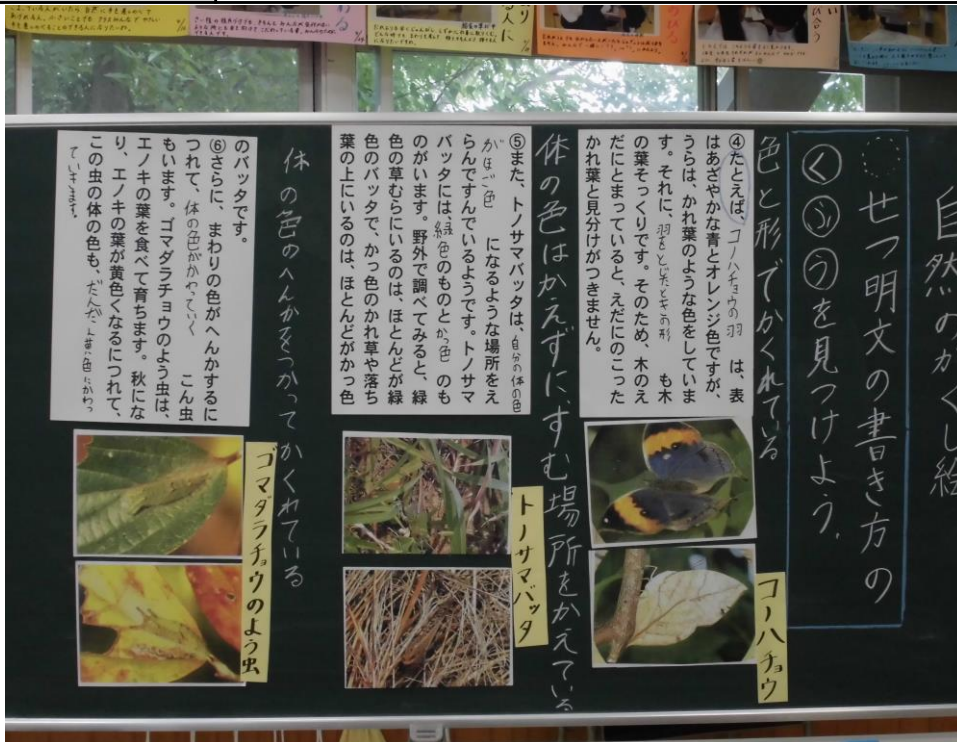 自然のかくし絵
せつ明文の書き方の
くふうを見つけよう。
色と形でかくれている
④たとえば、コノハチョウの羽は、表
はあざやかな青とオレンジ色ですが、
うらは、かれ葉のような色をしていま
す。それに、羽をとじたときの形も木
の葉そっくりです。そのため、木のえ
だにとまっていると、えだにのこった
かれ葉と見分けがつきません。
コノハチョウ
体の色はかえずに、すむ場所をかえている
⑤また、トノサマバッタは、自分の体の色
がほご色になるような場所をえ
らんですんでいるようです。トノサマ
バッタには、緑色のものとかっ色のも
のがいます。野外で調べてみると、緑
色の草むらにいるのは、ほとんどが緑
色のバッタで、かっ色のかれ草や落ち
葉の上にいるのは、ほとんどがかっ色
トノサマバッタ
のバッタです。
⑥さらに、まわりの色がへんかするに
つれて、体の色がかわっていくこん虫
もいます。ゴマダラチョウのよう虫は、
エノキの葉を食べて育ちます。秋にな
り、エノキの葉が黄色くなるにつれて、
この虫の体の色も、だんだん黄色にかわっ
ていきます。
体の色のへんかをつかってかくれている
ゴマダラチョウのよう虫